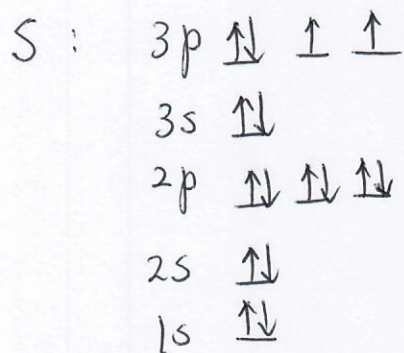 S : 3p ↑↓ ↑ ↑
3s ↑↓
2p ↑↓ ↑↓ ↑↓
2s ↑↓
1s ↑↓